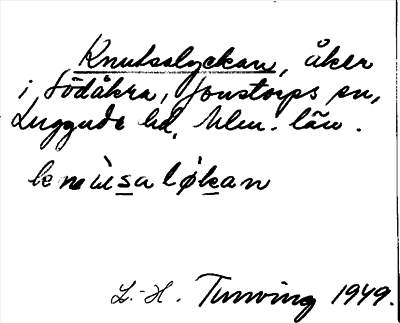 Knutsalyckan, åker
i Södåkra, Jonstorps sn,
Luggude hd, Mlm. län.
L.-H. Tunving 1949.